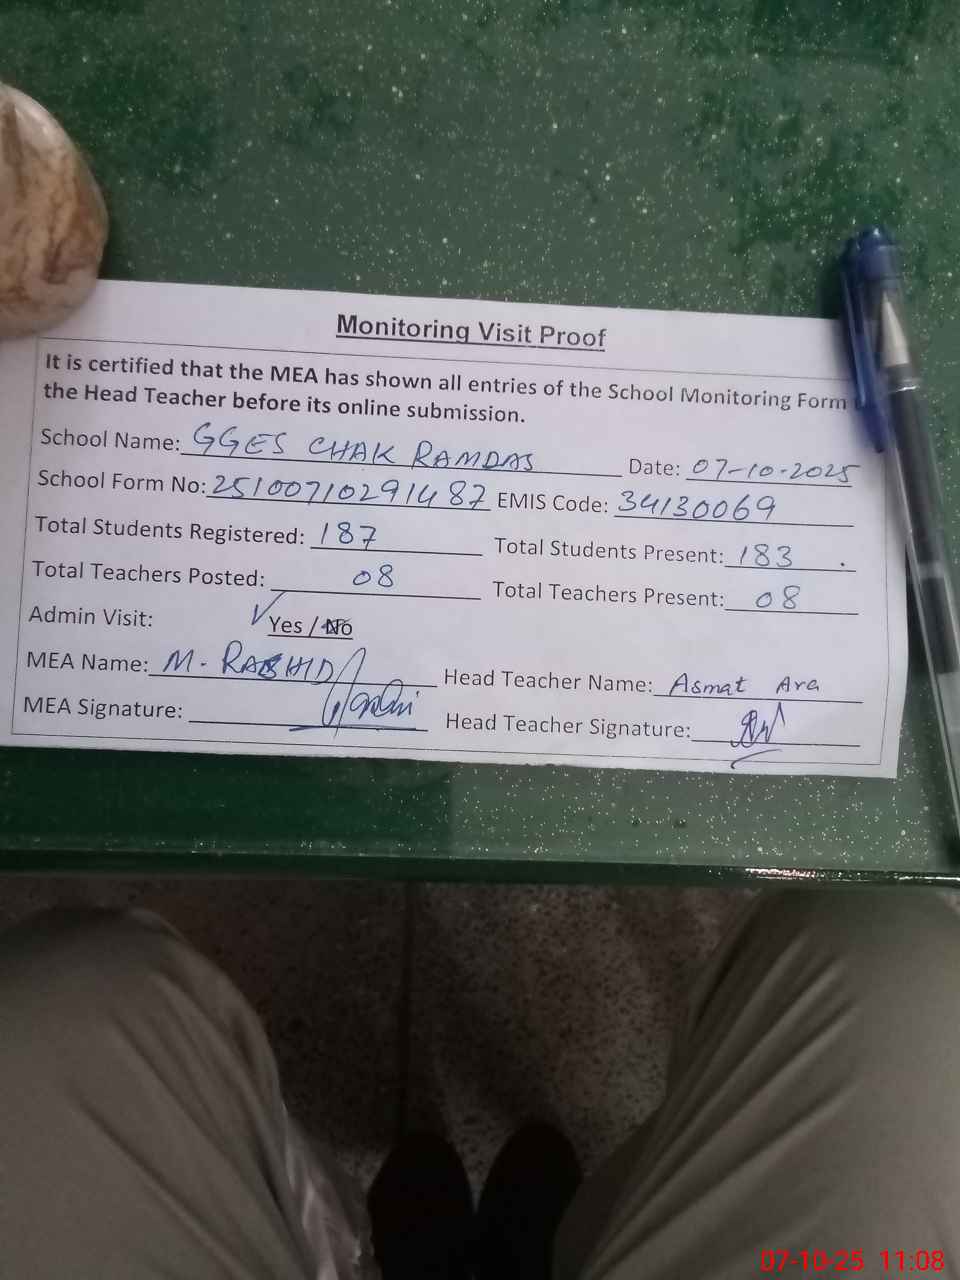 Monitoring Visit Proof
It is certified that the MEA has shown all entries of the School Monitoring Form
the Head Teacher before its online submission.
School Name: GGES CHAK RAMDAS Date: 07-10-2025
School Form No: 25100710291487 EMIS Code: 34130069
Total Students Registered: 187 Total Students Present: 183
Total Teachers Posted: 08 Total Teachers Present: 08
Admin Visit: ✓ Yes / No
MEA Name: M. RASHID Head Teacher Name: Asmat Ara
MEA Signature: Head Teacher Signature:
07-10-25 11:08